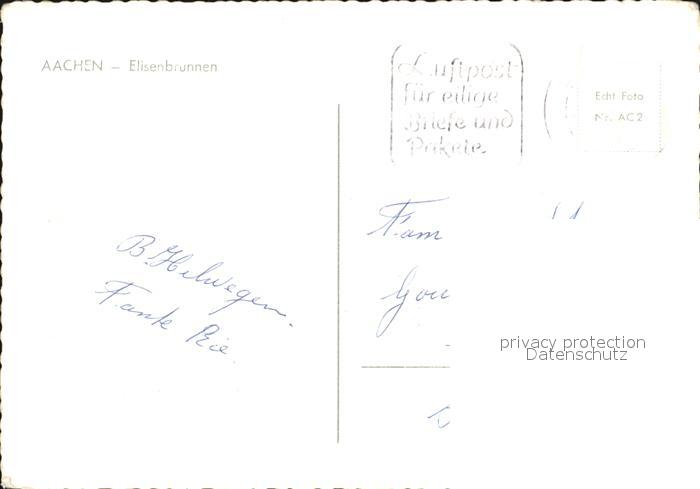 AACHEN – Elisenbrunnen
Luftpost
für eilige
Briefe und
Pakete.
Echt Foto
Nr. AC 2
Fam
Gou
B. Helwegen.
Tante Rie.
privacy protection
Datenschutz